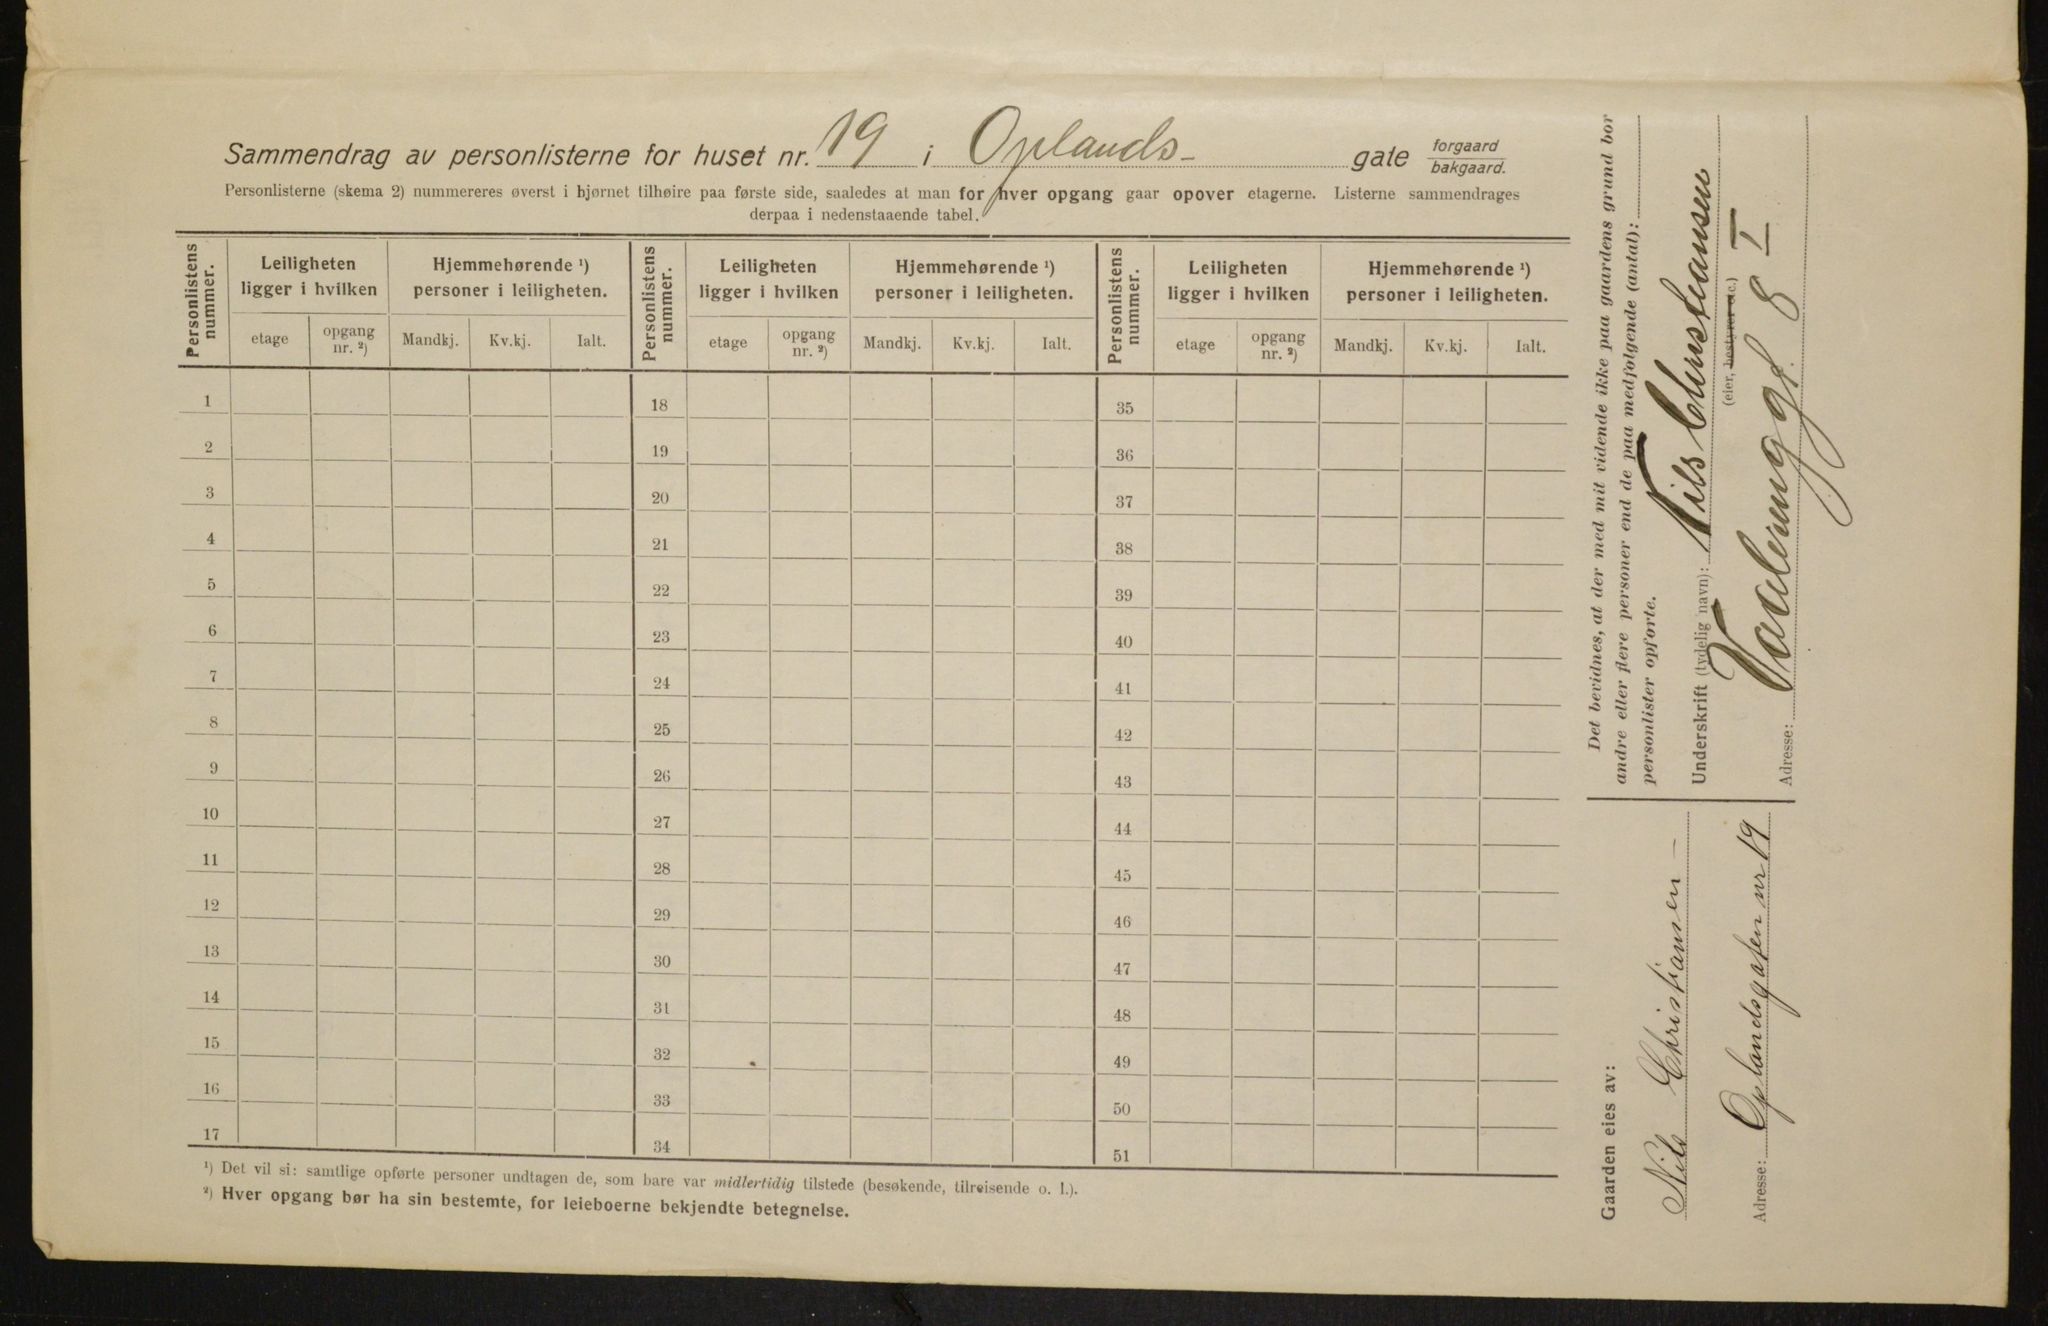 Sammendrag av personlisterne for huset nr. 19 i Oplands- gate forgaard bakgaard.
Personlisterne (skema 2) nummereres øverst i hjørnet tilhøire paa første side, saaledes at man for hver opgang gaar opover etagerne. Listerne sammendrages
derpaa i nedenstaaende tabel.
Personlistens nummer. Leiligheten ligger i hvilken Hjemmehørende ¹) personer i leiligheten. Personlistens nummer. Leiligheten ligger i hvilken Hjemmehørende ¹) personer i leiligheten. Personlistens nummer. Leiligheten ligger i hvilken Hjemmehørende ¹) personer i leiligheten.
etage opgang nr. ²) Mandkj. Kv.kj. Ialt. etage opgang nr. ²) Mandkj. Kv.kj. Ialt. etage opgang nr. ²) Mandkj. Kv.kj. Ialt.
1 18 35
2 19 36
3 20 37
4 21 38
5 22 39
6 23 40
7 24 41
8 25 42
9 26 43
10 27 44
11 28 45
12 29 46
13 30 47
14 31 48
15 32 49
16 33 50
17 34 51
¹) Det vil si: samtlige opførte personer undtagen de, som bare var midlertidig tilstede (besøkende, tilreisende o. l.).
²) Hver opgang bør ha sin bestemte, for leieboerne bekjendte betegnelse.
Gaarden eies av:
Nils Christiansen
Adresse: Oplandsgaten nr 19
Det bevidnes, at der med mit vidende ikke paa gaardens grund bor
andre eller flere personer end de paa medfølgende (antal):
personlister opførte.
Underskrift (tydelig navn): Nils Christiansen
(eier, bestyrer etc.)
Adresse: Vaalerengg. 8 I